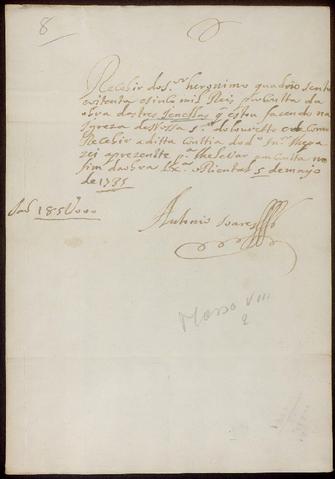 8
Recebi do s.r heronimo quadro sento
oitenta e sinco mil Reis p.r Conta da
obra das tres Jenellas q estou fazendo na
Igreza de Nossa s.ra do Louretto e de Como
Recebi a ditta Contia do d.o s.r lhe pa
zei aprezente p.a lhe levar em Conta no
fim da obra Lx.a
5 de mayo
de 1785
São 185U000
Antonio Soares
Masso VIII
2